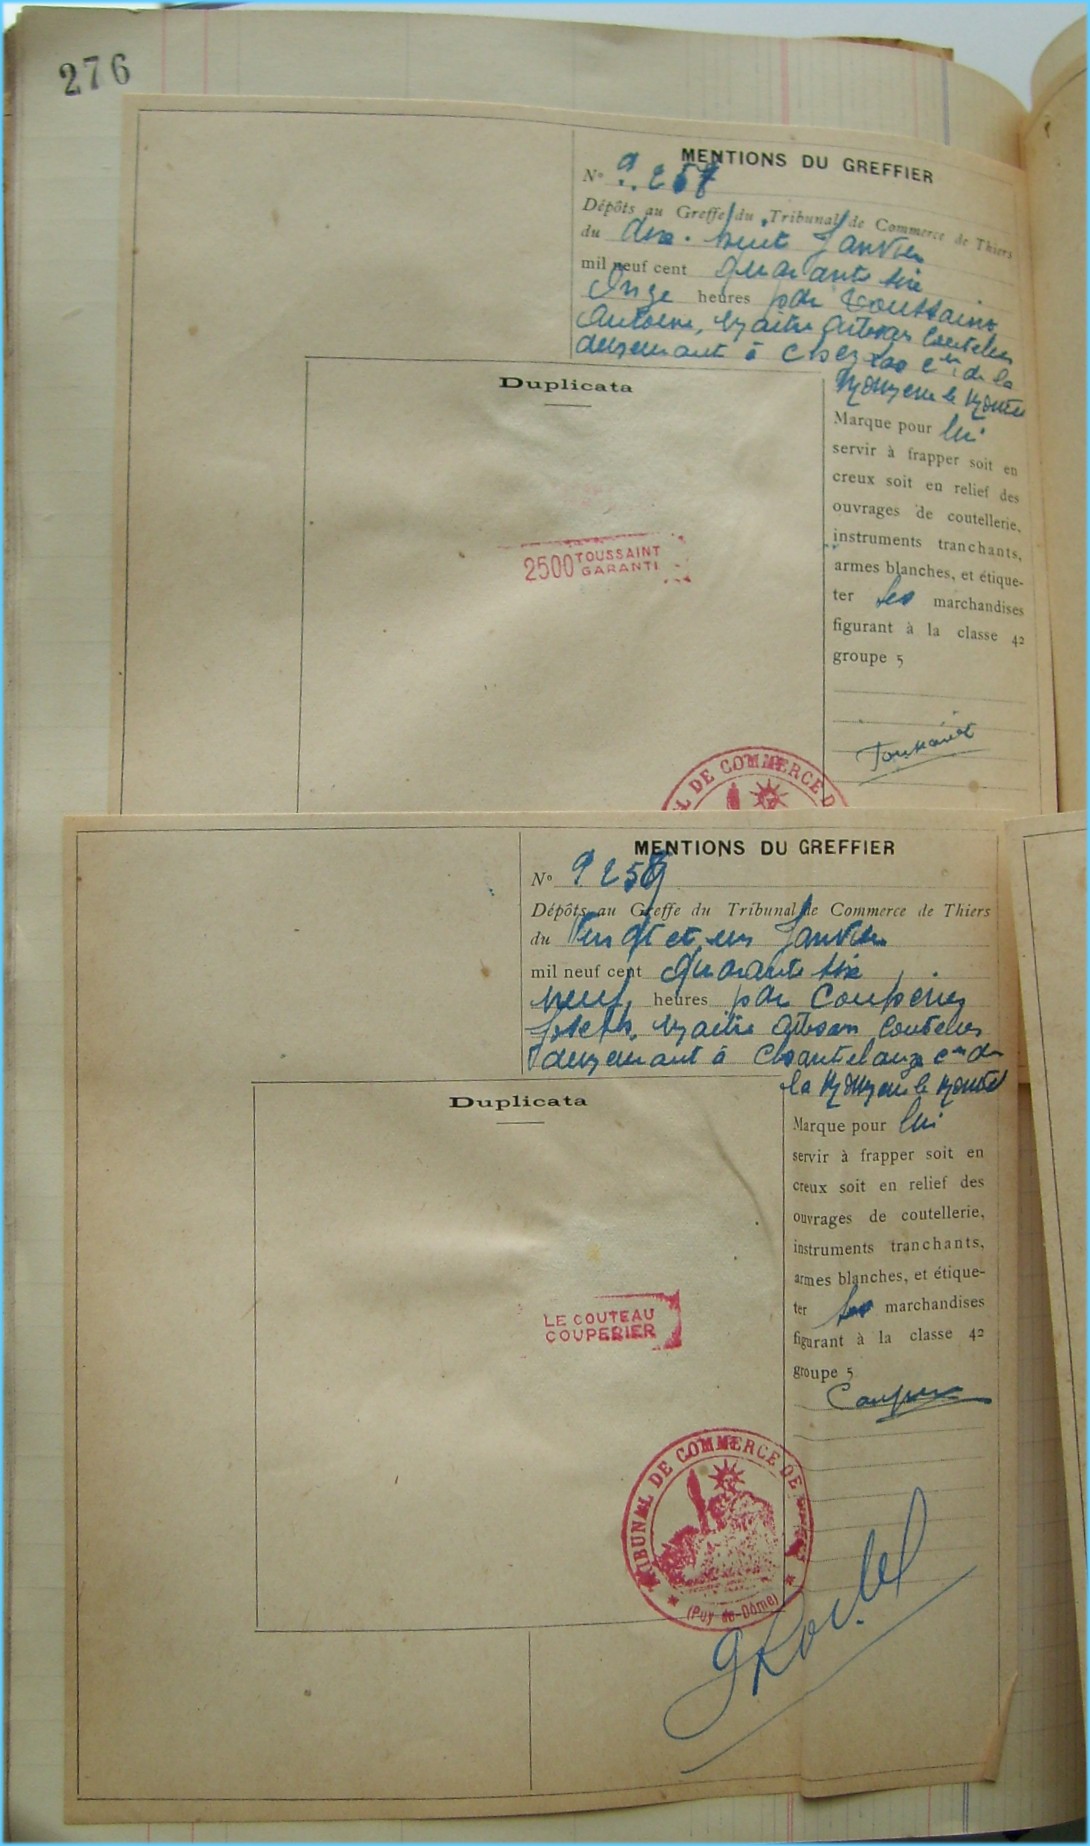 276
MENTIONS DU GREFFIER
N° 9.257
Dépôts au Greffe du Tribunal de Commerce de Thiers
du dix-huit Janvier
mil neuf cent quarante six
Onze heures par Toussaint
Antoine, Maitre Artisan Coutelier
demeurant à Cne de la
Monnerie le Montel
Duplicata
Marque pour lui
servir à frapper soit en
creux soit en relief des
ouvrages de coutellerie,
instruments tranchants,
armes blanches, et étique-
ter les marchandises
figurant à la classe 42
groupe 5
2500 TOUSSAINT
GARANTI
Toussaint
AL DE COMMERCE D
MENTIONS DU GREFFIER
N° 9 25
Dépôts au Greffe du Tribunal de Commerce de Thiers
du Vingt et un Janvier
mil neuf cent quarante six
neuf heures par Couperier
Joseph, Maitre Artisan Coutelier
demeurant à Chantelauze Cne de
la Monnerie le Montel
Duplicata
Marque pour lui
servir à frapper soit en
creux soit en relief des
ouvrages de coutellerie,
instruments tranchants,
armes blanches, et étique-
ter les marchandises
figurant à la classe 42
groupe 5
LE COUTEAU
COUPERIER
TRIBUNAL DE COMMERCE DE
(Puy-de-Dôme)